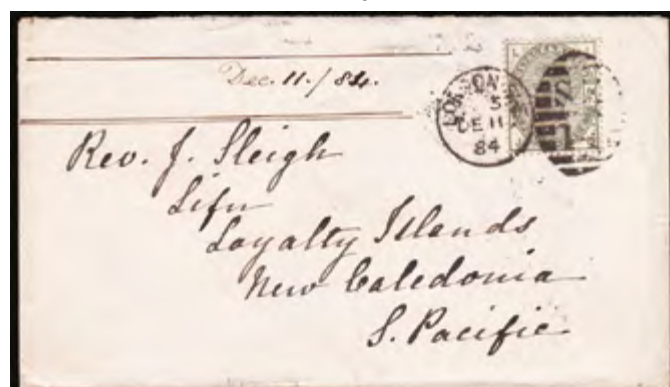 Dec. 11./84.
LONDON
5
DE 11
84
L
Rev. J. Sleigh
Lifu
Loyalty Islands
New Caledonia
S. Pacific